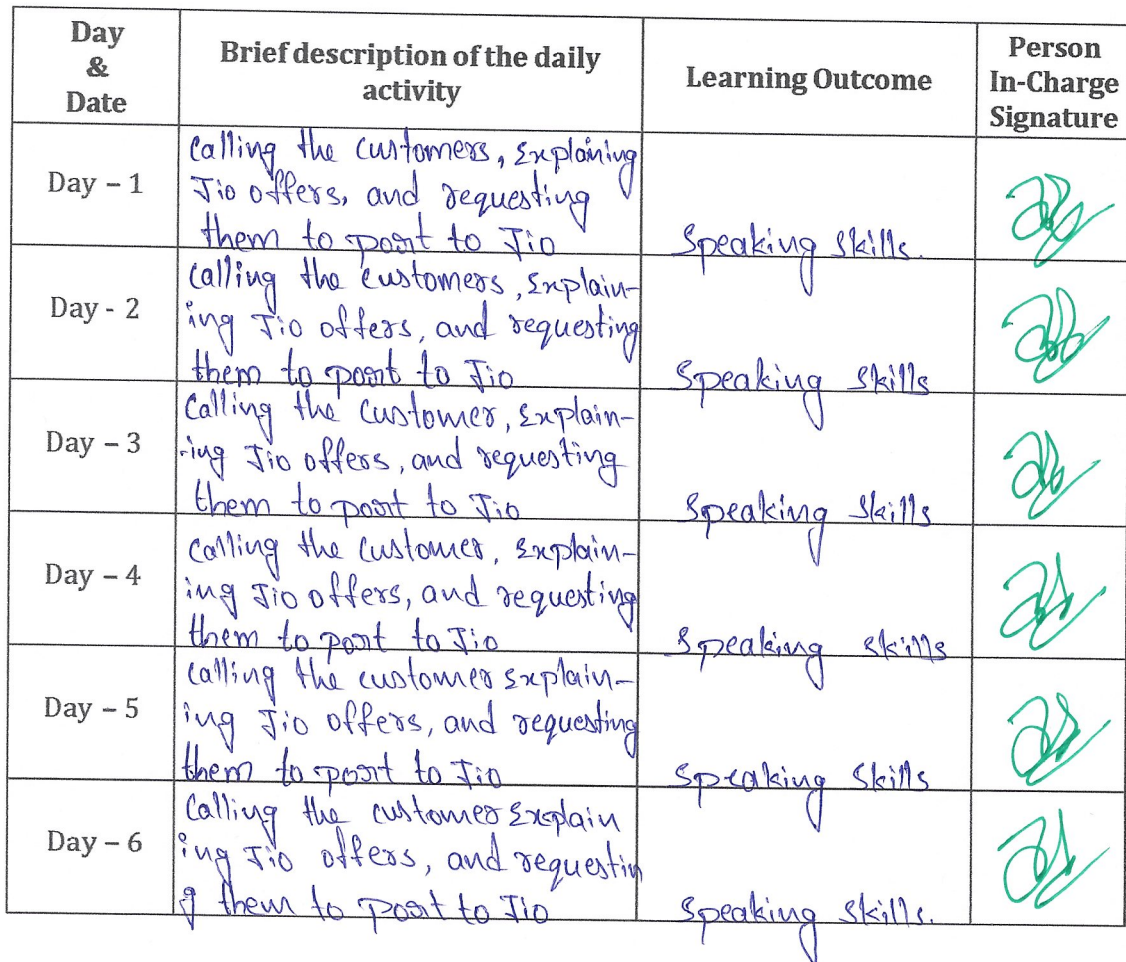 Day
&
Date
Brief description of the daily
activity
Learning Outcome
Person
In-Charge
Signature
Day – 1
Calling the customers, Explaining
Jio offers, and requesting
them to port to Jio
Speaking Skills.
Day - 2
Calling the customers, Explain-
ing Jio offers, and requesting
them to port to Jio
Speaking Skills
Day – 3
Calling the customer, Explain-
-ing Jio offers, and requesting
them to port to Jio
Speaking Skills
Day – 4
Calling the customer, Explain-
ing Jio offers, and requesting
them to port to Jio
Speaking skills
Day – 5
Calling the customer Explain-
ing Jio offers, and requesting
them to port to Jio
Speaking Skills
Day – 6
Calling the customer Explain
ing Jio offers, and requestin
g them to port to Jio
Speaking Skills.